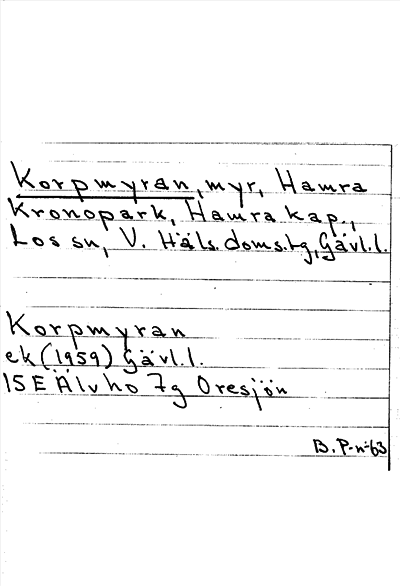 Korpmyran, myr, Hamra
Kronopark, Hamra kap.,
Los sn, V. Häls. doms.tg, Gävl.l.
Korpmyran
ek (1959) Gävl.l.
15E Älvho 7g Oresjön
B. P-n-63